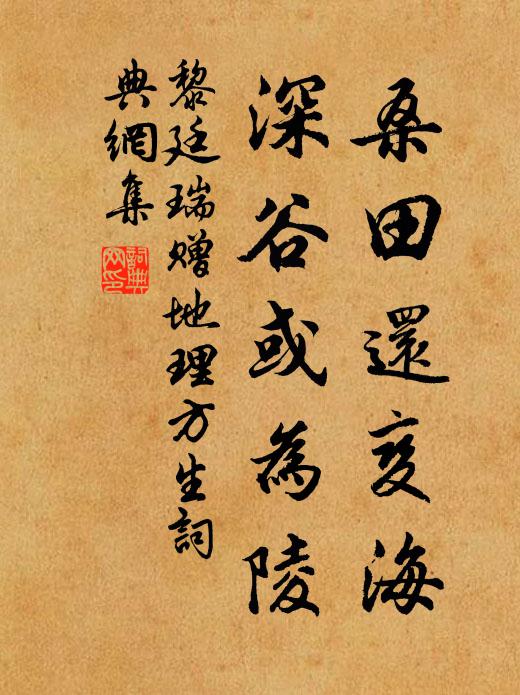 桑田還变海
深谷或為陵
黎廷瑞贈地理方生詞
典網集
詞典
网印